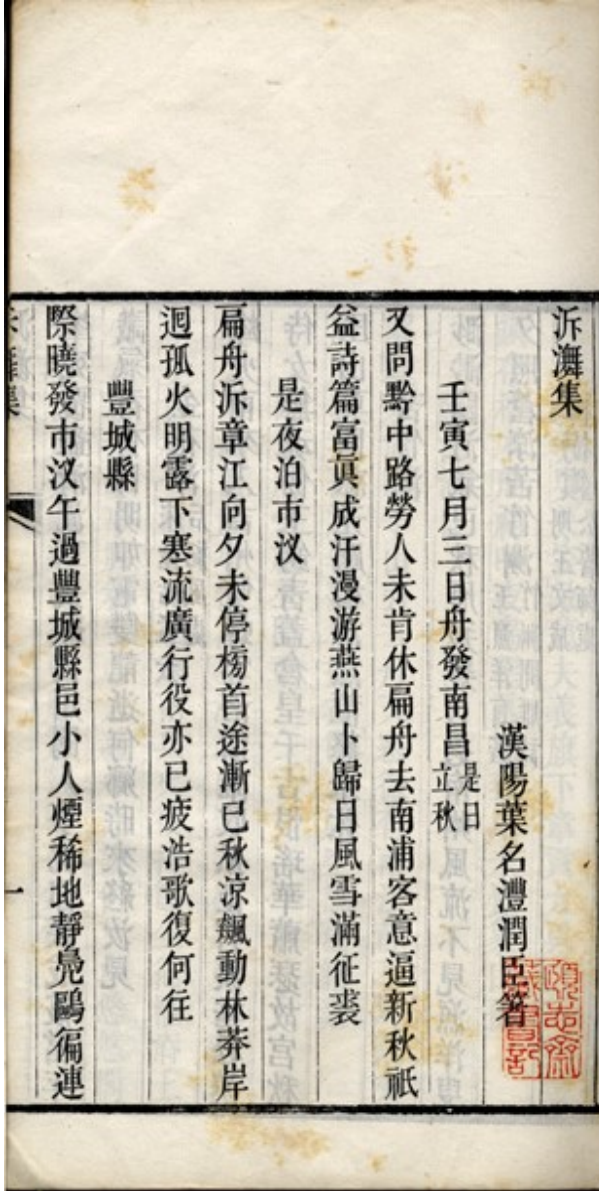 泝㵲集
漢陽葉名灃潤臣箸
壬寅七月三日舟發南昌是日立秋
又問黔中路勞人未肯休扁舟去南浦客意逼新秋祇
益詩篇富眞成汗漫游燕山卜歸日風雪滿征裘
是夜泊市汊
扁舟泝章江向夕未停㮄首途漸已秋涼飆動林莽岸
迴孤火明露下寒流廣行役亦已疲浩歌復何往
豐城縣
際曉發市汊午過豐城縣邑小人煙稀地靜鳧鷗徧連
一